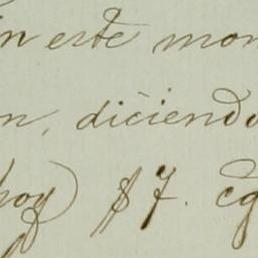 in este mon
n, diciendo
hoy) $7. cg